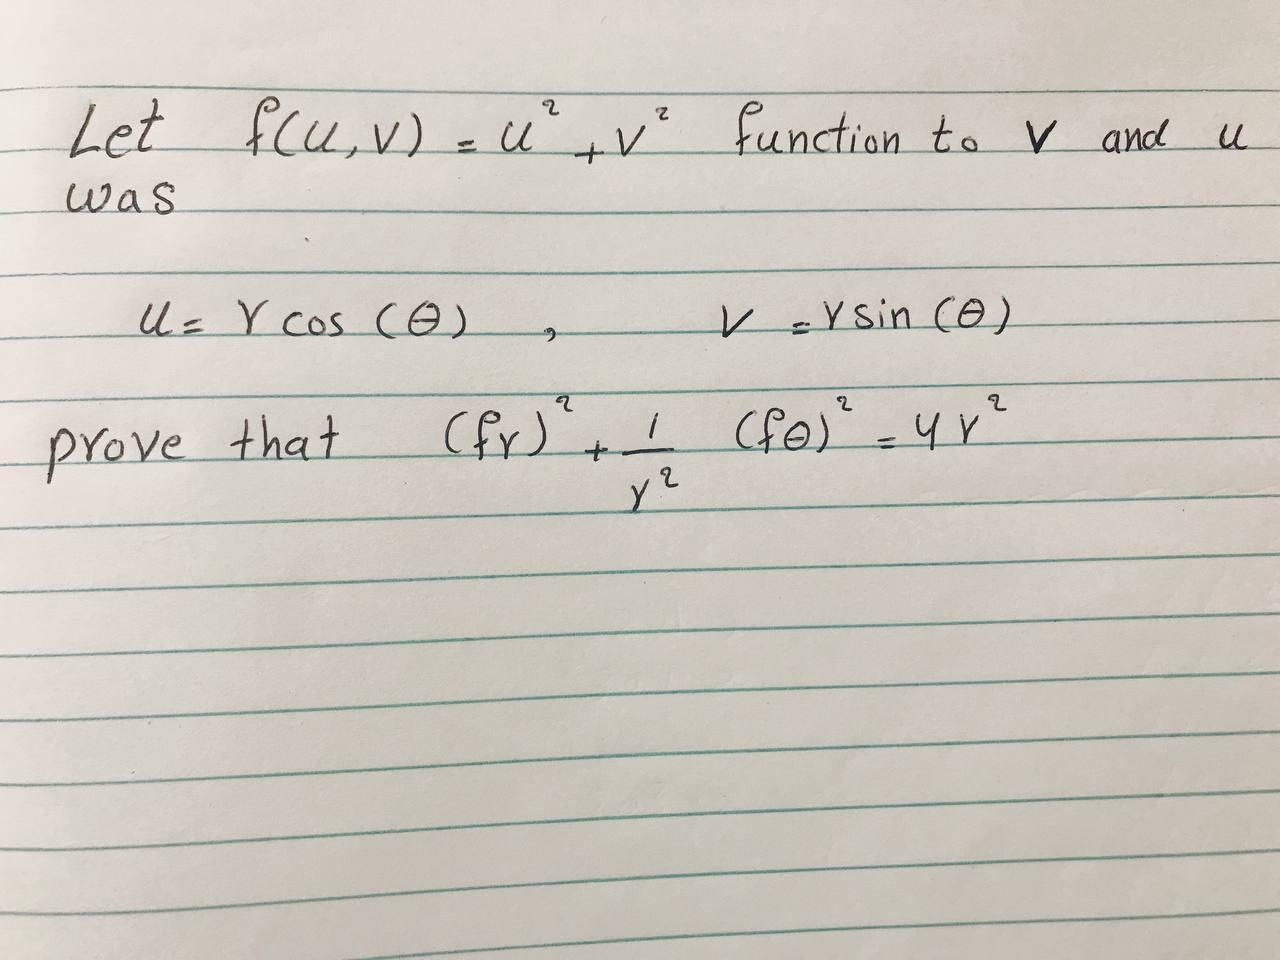 Let f(u,v) = u² + v² function to v and u
was
u = r cos (θ) , v = r sin (θ)
prove that (fr)² + 1/r² (fθ)² = 4r²